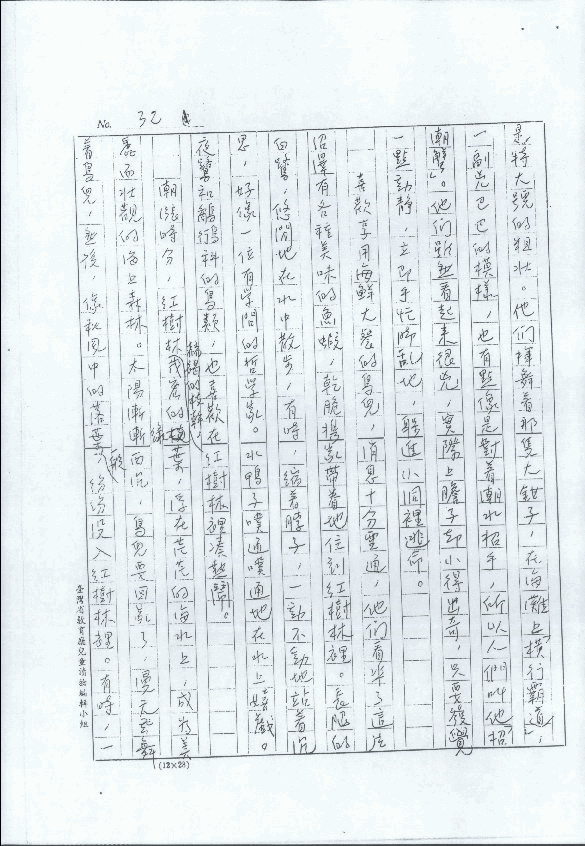 No. 32
是特大號的粗壯。他們揮舞着那隻大鉗子，在海灘上橫行霸道，
一副兇巴巴的模樣，也有點像是對着潮水招手，所以人們叫他「招
潮蟹」。他們雖然看起來很兇，實際上膽子卻小得出奇，只要發覺
一點動靜，立即手忙腳亂地，躲進小洞裡逃命。
喜歡享用海鮮大餐的鳥兒，消息十分靈通，他們看準了這片
沼澤有各種美味的魚蝦，乾脆攜家帶眷地住到紅樹林裡。長腿的
白鷺，悠閒地在水中散步，有時，縮着脖子，一動不動地站着沉
思，好像一位有學問的哲學家。水鴨子噗通噗通地在水上嬉戲。
夜鷺和鷸鴴科的鳥類，也喜歡在紅樹林裡湊熱鬧。
潮漲時分，紅樹林茂密的綠葉，浮在茫茫的海水上，成為美
赫褐的枝幹，
麗而壯觀的海上森林。太陽漸漸西沉，鳥兒要回家了，漫天飛舞
着鳥兒，無數，像秋風中的落葉般，紛紛沒入紅樹林裡。有時，一
臺灣省教育廳兒童讀物編輯小組
(12×28)